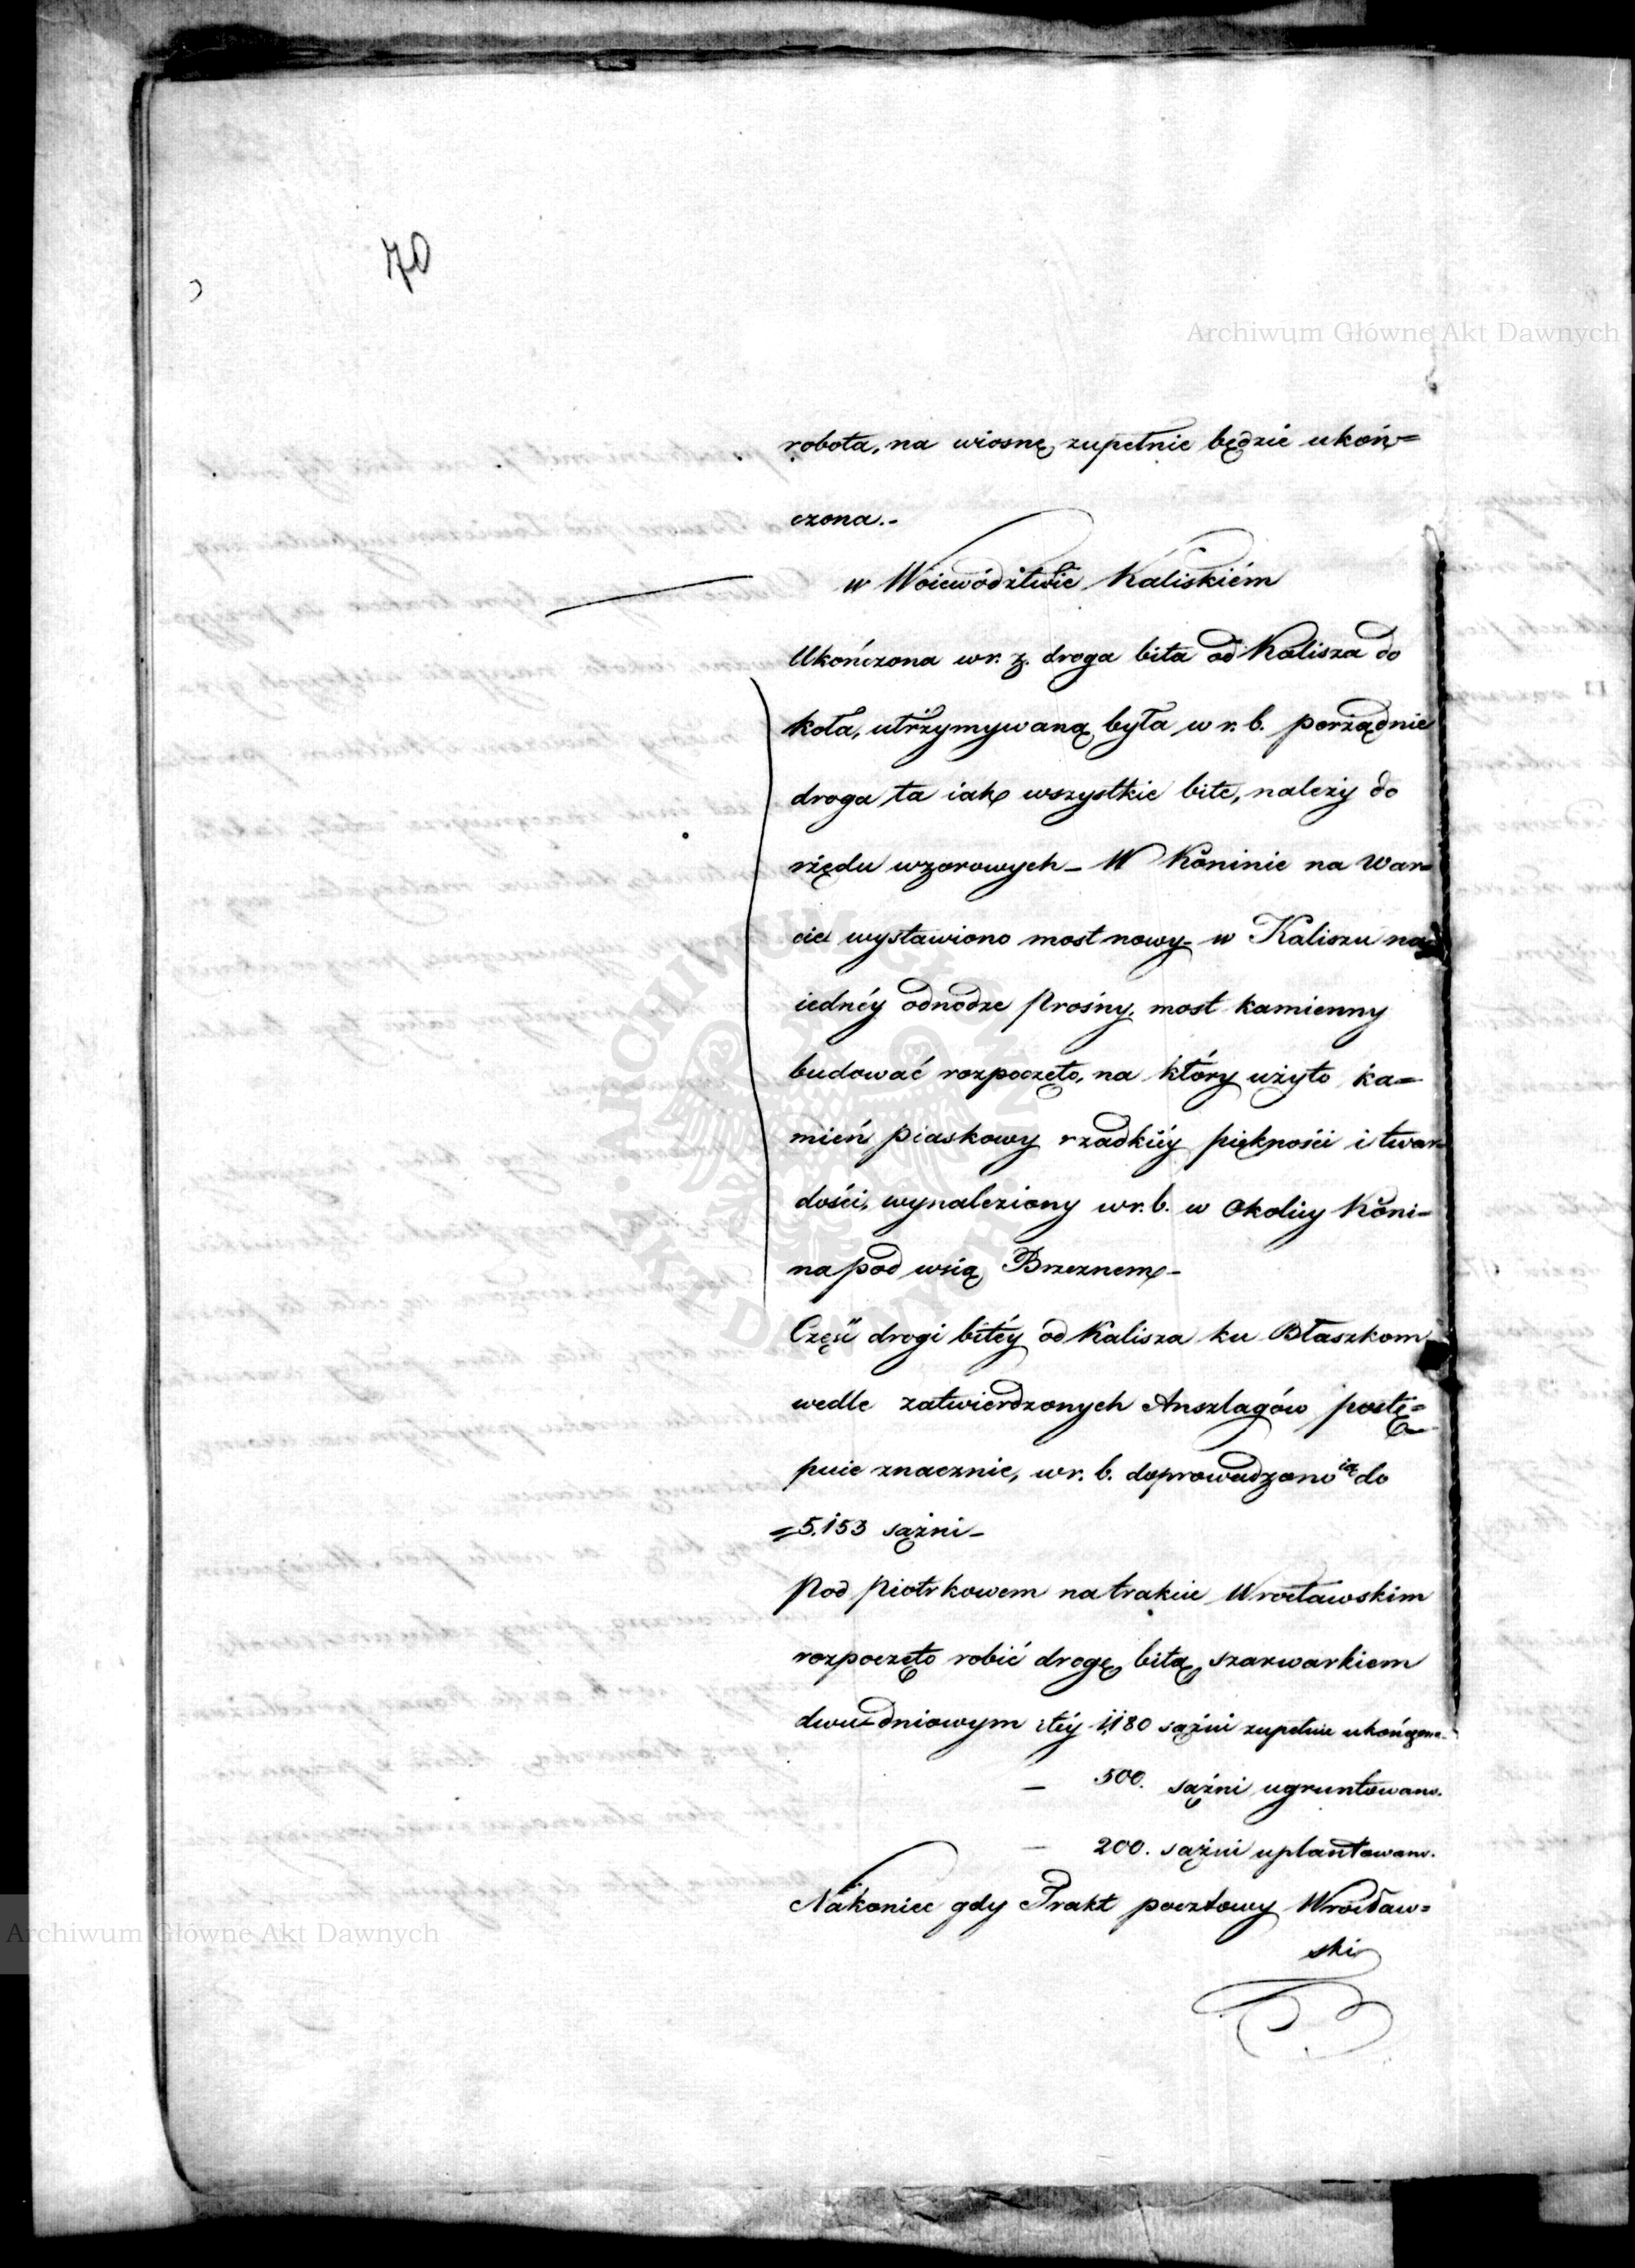 70
Archiwum Główne Akt Dawnych
robota, na wiosnę zupełnie będzie ukoń=
czona.-
w Woiewództwie Kaliskiém
Ukończona w r. z. droga bita od Kalisza do
Koła, utrzymywaną była w r. b. porządnie
droga ta iak wszystkie bite, należy do
rzędu wzorowych - W Koninie na War=
cie wystawiono most nowy - w Kaliszu na
iednéy odnodze Prosny, most kamienny
budować rozpoczęto, na który użyto ka=
mień piaskowy rzadkiéy piękności i twar=
dości, wynaleziony w r. b. w okolicy Koni=
na pod wsią Brzeznem -
Część drogi bitéy od Kalisza ku Błaszkom
wedle zatwierdzonych Anszlagów postę=
puie znacznie, w r. b. doprowadzono ią do
=5.153 sążni -
Pod Piotrkowem na trakcie Wrocławskim
rozpoczęto robić drogę bitą, szarwarkiem
dwu-dniowym i téy 1,180 sążni zupełnie ukończono
— 500. sążni ugruntowano.
— 200. sążni uplantowano.
Nakoniec gdy Trakt pocztowy Wrocław=
ski
ARCHIWUM GŁÓWNE AKT DAWNYCH
Archiwum Główne Akt Dawnych